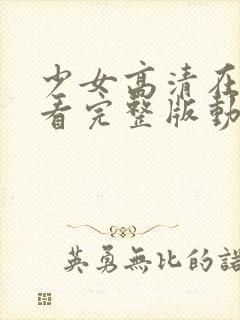 少女高清在
看完整版動
英勇無比的諾